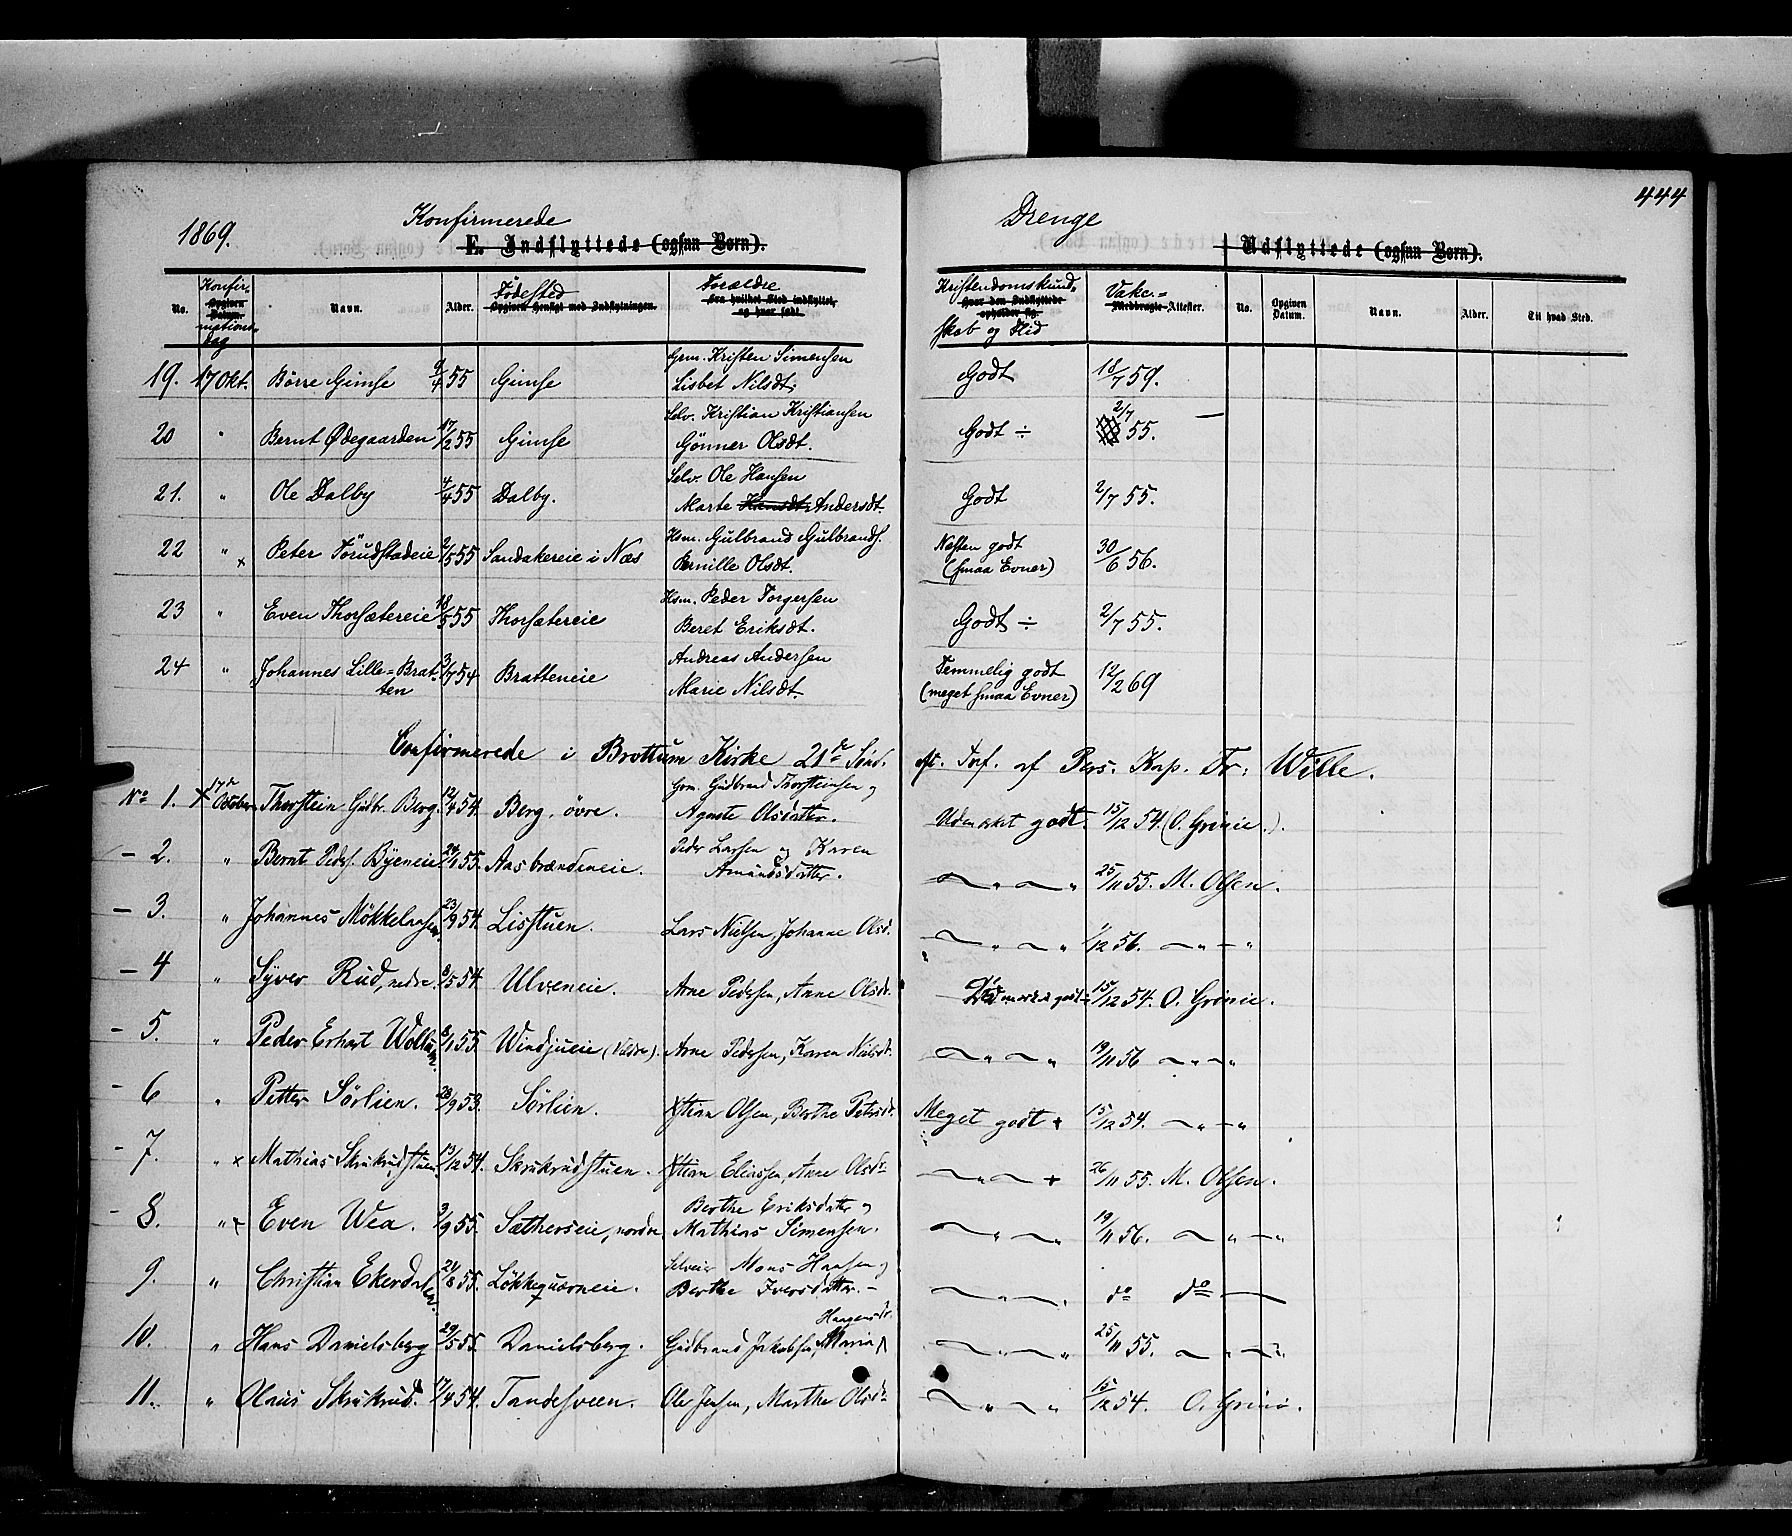 444
1869.
Konfirmerede
Drenge
E. Indflyttede (ogsaa Børn).
Udflyttede (ogsaa Børn).
No. Konfirmationsdag Opgiven Datum. Navn. Alder. Fødested Opgiven Hensigt med Indflytningen. Forældre Fra hvilket Sted indflyttet, og hvor født. Kristendomskundskab og Flid Hvor den Indflyttede opholder sig. Vakc.= Medbragte Attester. No. Opgiven Datum. Navn. Alder. Til hvad Sted.
19. 17 Okt. Børre Gimse 9/4 55 Gimse Grm. Kristen Simensen Lisbet Nilsdt. Godt 18/7 59.
20 " Bernt Ødegaarden 17/2 55 Gimse Selv. Kristian Kristiansen Gönner Olsdt. Godt ÷ 2/7 55.
21. " Ole Dalby 4/4 55 Dalby. Selv. Ole Hansen Marte Hansdt. Andersdt. Godt 2/7 55.
22 " x Peter Törudstadeie 2/5 55 Sandakereie i Næs Hsm. Gulbrand Gulbrands. Pernille Olsdt. Næsten godt (smaa Evner) 30/6 56.
23 " Even Thorsætereie 18/5 55 Thorsætereie Hsm. Peder Torgersen Beret Eriksdt. Godt ÷ 2/7 55.
24 " Johannes Lille=Bratten 3/7 54 Bratteneie Andreas Andersen Marie Nilsdt. Temmelig godt (meget smaa Evner) 12/2 69
Confirmerede i Brøttum Kirke 21de Sönd. eft. Tref. af Pers. Kap. Fr: Wille.
No 1. x 17de October Thorstein Gudbr. Berg. 12/4 54. Berg, övre. Grm. Gudbrand Thorsteinsen og Agnete Olsdatter. Udmærket godt. 15/12 54. (O. Grönie.).
- 2. " Bernt Peds. Byeneie 24/1 55. Aasbrændeneie. Peder Larsen og Karen Amundsdatter. " " 25/11 55. M. Olsen.
- 3. " Johannes Mökkelaasen 23/9 54. Liestuen. Lars Nielsen, Johanne Olsd. " " 1/12 56. " "
- 4 " Syver Rud, nedre. 8/5 54. Ulveneie. Arne Pedersen, Anne Olsdr. Udmærket godt 15/12 54. O. Grönie.
- 5. " Peder Erhart Wollum 8/1 55. Windjueie (Valdre). Arne Pedersen, Karen Nielsdr. " 19/11 56 " "
- 6 " Petter Sörlien. 28/9 53. Sörlien. Xstian Olsen, Berthe Petersdr. Meget godt + 15/12 54. " "
- 7. " x Mathias Skrukrudstuen. 13/12 54. Skrukrudstuen. Xstian Eliassen, Anne Olsdr " + 26/11 55. M. Olsen.
- 8. " x Even Wea. 3/9 55. Sætherseie, nordre Berthe Eriksdatter og Mathias Simensen. " 19/11 56. " "
9. " Christian Ekerdalen 24/8 55. Lökkequærneie. Selveier Mons Hansen og Berthe Iversdatter. - " " do do
10. " Hans Danielsberg 29/5 55. Danielsberg. Gudbrand Jakobsen, Maria Haagensdr. " " 25/11 55. " "
11. " Olaus Skrukrud. 17/4 54. Tandesveen. Ole Jensen, Marthe Olsdr " " 15/12 54. O. Grönie.